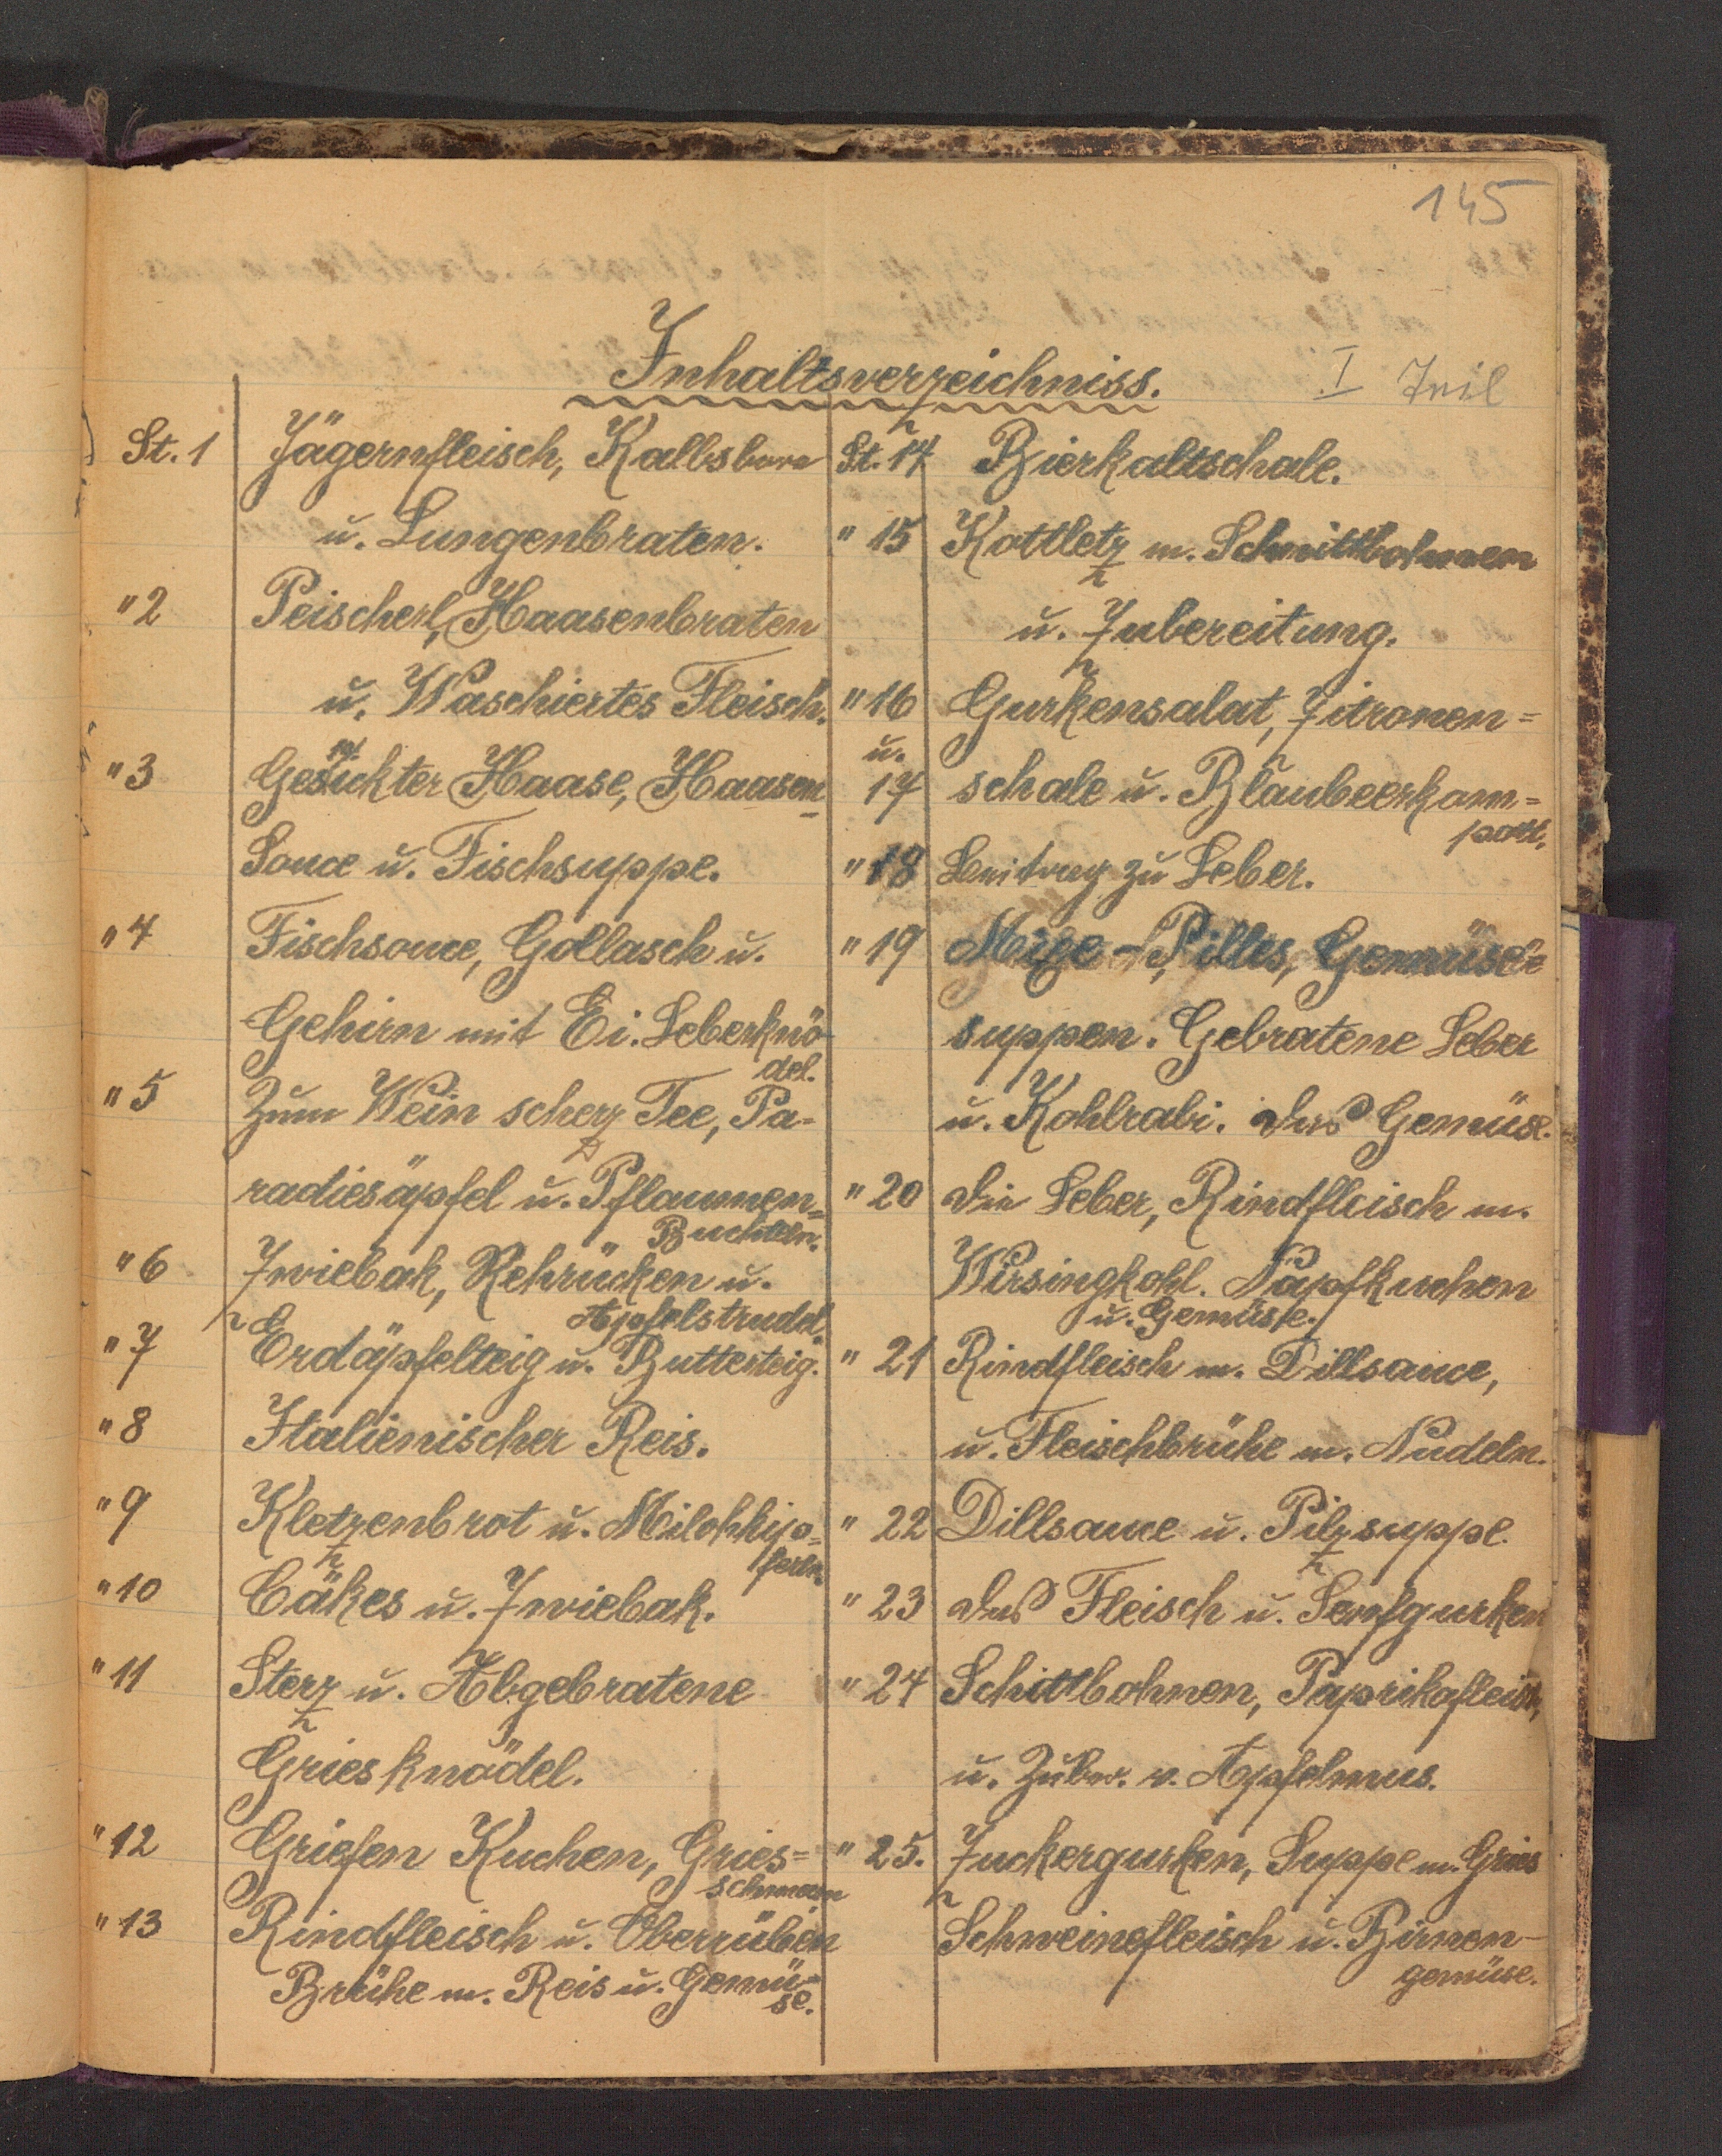 145
Inhaltsverzeichniss.
I Teil
St. 1 Jägernfleisch, Kalbs
u. Lungenbraten.
" 2 Peischerl, Haasenbraten
u. Waschiertes Fleisch.
" 3 Haase, Haasen
Souce u. Fischsuppe.
" 4 Fischsouce, Gollasch u.
Gehirn mit Ei. Leberknö-
del.
" 5 Zum Wein scherz Tee, Pa-
radiesäpfel u. Pflaumen=
Buchteln.
" 6 Zwiebak, Rehrücken u.
Apfelstrudel.
" 7 Erdäpfelteig u. Butterteig.
" 8 Italienischer Reis.
" 9 Kletzenbrot u. Milchkip=
ferln.
" 10 Cäkes u. Zwiebak.
" 11 Sterz u. Abgebratene
Griesknödel.
" 12 Griefen Kuchen, Gries=
schmarn
" 13 Rindfleisch u. Oberrüben
Brühe m. Reis u. Gemü=
se.
St. 14 Bierkaltschale.
" 15 Kottletz m. Schnittbohnen
u. Zubereitung.
" 16 Gurkensalat, Zitronen=
u.
17 schale u. Blaubeerkom=
pott.
" 18 Beitrag zu Leber.
" 19 Pilles, Gemüse
suppen. Gebratene Leber
u. Kohlrabi. das Gemüse.
" 20 die Leber, Rindfleisch m.
Wirsingkohl. Napfkuchen
u. Gemüse.
" 21 Rindfleisch m. Dillsauce,
u. Fleischbrühe m. Nudeln.
" 22 Dillsauce u. Pilzsuppe.
" 23 das Fleisch u. Senfgurken
" 24 Schittbohnen, Paprikafleisch,
u. Zuber. v. Apfelmus.
" 25. Zuckergurken, Suppe m. Gries
Schweinefleisch u. Birnen-
gemüse.